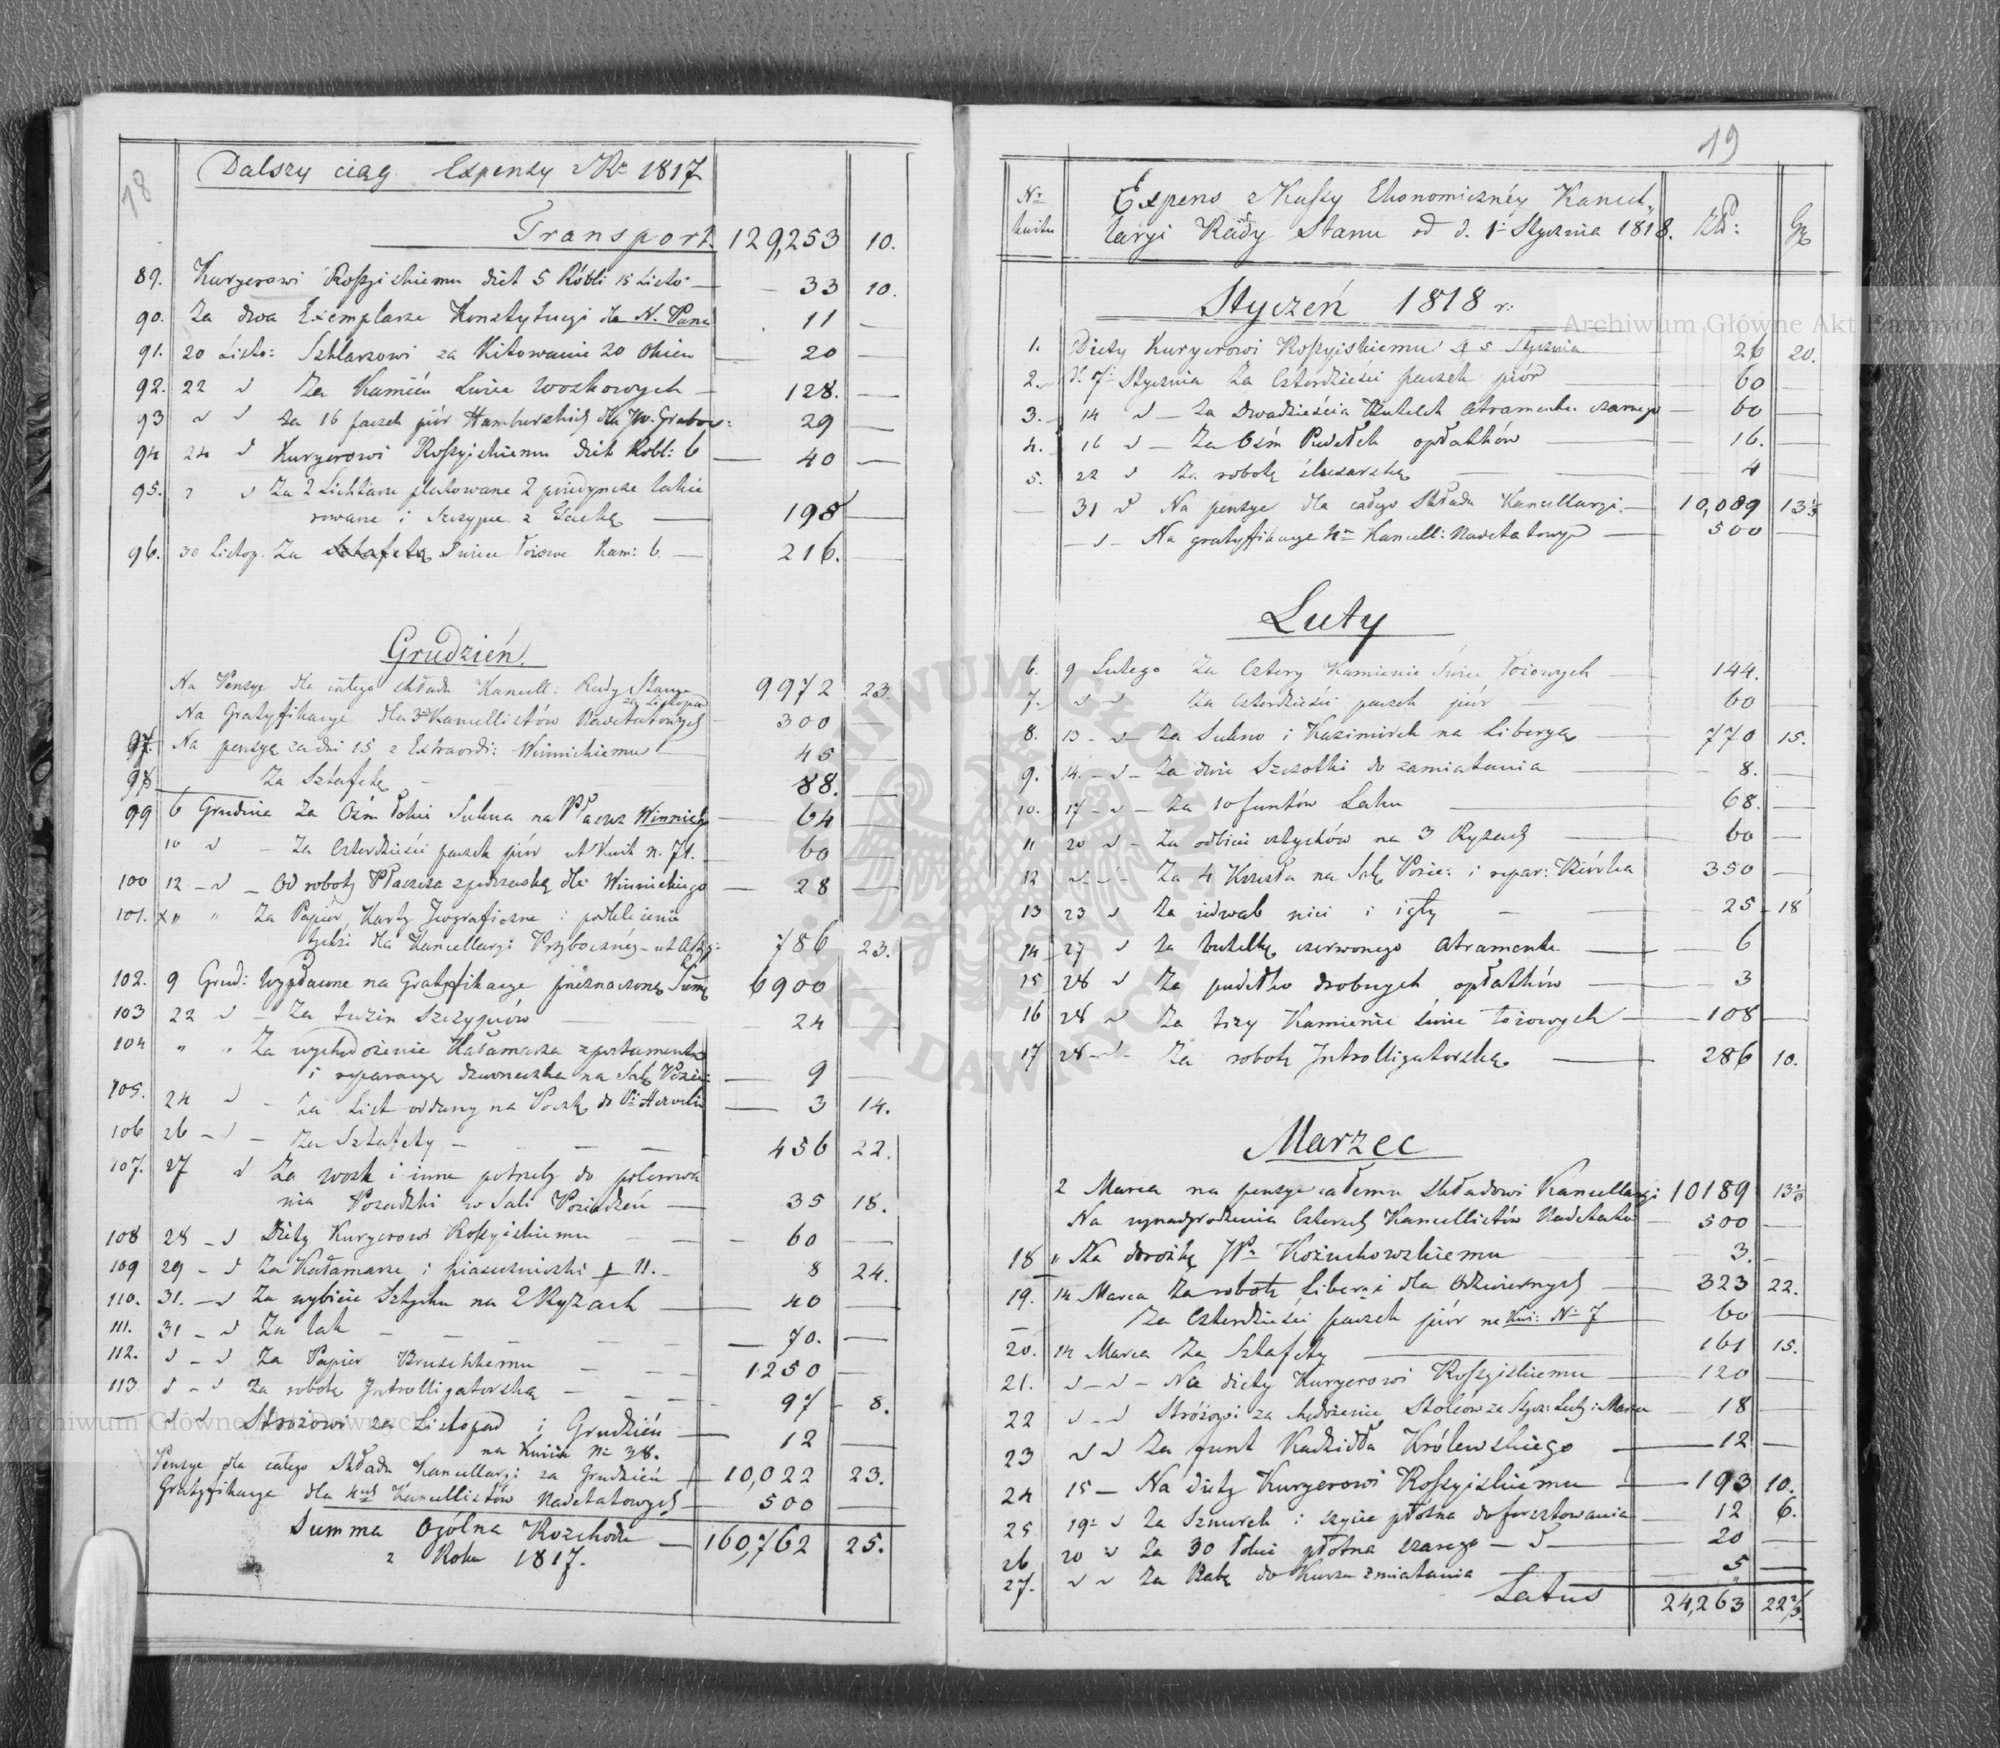 18
Dalszy ciąg Expensy z Rku 1817
Transport. 129,253 10.
89. Kuryerowi Rossyiskiemu diet 5 Róbli 15 Listo: 33 10.
90. Za dwa Exemplarze Konstytucyi dla N. Pana 11 —
91. 20 Listo: Szklarzowi za Kitowanie 20 Okien 20 —
92. 22 " Za Kamień Swiec woskowych 128. —
93 " " za 16 paczek piór Hamburskich dla JW. Grabow: 29 —
94 24 " Kuryerowi Rossyiskiemu diet Robl: 6 40 —
95. " " Za 2 Lichtarze platowane 2 pojedyncze lakie
rowane i Szczypce z Tacką 198 —
96. 30 Listop. Za Sztafetę Swiec łoiowe Kam: 6 216. —
Grudzień.
Na Pensye dla całego składu Kancell: Rady Stanu
za Listopad 9972 23.
Na Gratyfikacye dla 3ch Kancellistów Nadetatowych 300 —
97. Na pensyę za dni 15 z Extraordi: Winnickiemu 45 —
98 Za Sztafetę 88. —
99 6 Grudnia Za Ośm łokci Sukna na Płaszcz Winnick 64 —
10 " — Za Czterdzieści paczek piór ut Kwit n. 71. 60 —
100 12 — " — Od roboty Płaszcza z podszewką dla Winnickiego 28 —
101. x " " Za Papier, Karty Jeograficzne i podklejenie
tychże dla Kancellaryi Przyboczney — ut Assy: 786 23.
102. 9 Grud: Wypłacone na Gratyfikacye przeznaczoną Summę 6900
103 22 " — Za tuzin Szczypców 24 —
104 " " Za wychędożenie Kałamarza z postumentu
i reparacyę dzwoneczka na Salę Posie: 9 —
105. 24 " — Za List oddany na Pocztę do 3 14.
106 26 — " — Za Sztafety 456 22.
107. 27 " Za wosk i inne potrzeby do polerowa
nia Posadzki w Sali Posiedzeń 35 18.
108 28 — " Diety Kuryerowi Rossyiskiemu 60 —
109 29 — " Za Kałamarze i piaseczniczki p 11. 8 24.
110. 31. — " Za wybicie Sztychu na 2 Ryzach 40 —
111. 31 — " Za lak 70. —
112. " — " Za Papier Bruschkemu 1250 —
113 " — " Za robotę Introlligatorską 97 8.
— " " Stróżowi za Listopad i Grudzień
na Kwicie No 38. 12 —
Pensye dla całego Składu Kancellaryi za Grudzień 10,022 23.
Gratyfikacye dla 4ech Kancellistów Nadetatowych 500 —
Summa Ogólna Rozchodu 160,762 25.
z Roku 1817.
19
Nr kwitu
Expens z Kassy Ekonomicznéy Kancel„
laryi Rady Stanu od d. 1 Stycznia 1818. Złt: Gr
Styczeń 1818 r:
1. Diety Kuryerowi Rossyiskiemu d 5 Stycznia 26 20.
2. d. 7 Stycznia Za Czterdzieści paczek piór 60 —
3. 14 " — Za Dwadzieścia Butelek Atramentu czarnego 60 —
4. 16 " — Za Ośm Pudełek opłatków 16. —
5. 22 " Za robotę ślusarską 4 —
— 31 " Na pensye dla całego Składu Kancellaryi 10,089 13⅓
— " — Na gratyfikacye 4m Kancell: Nadetatowym 500 —
Luty
6. 9 Lutego Za Cztery Kamienie Swiec łoiowych 144. —
7. " " Za Czterdzieści paczek piór 60 —
8. 13 — " — Za Sukno i Kazimirek na Liberyę 770 15.
9. 14. — " — Za dwie Szczotki do zamiatania 8. —
10. 17 — " — Za 10 funtów Laku 68. —
11 20 " — Za odbicie sztychów na 3 Ryzach 60 —
12 " — " — Za 4 Krzesła na Salę Posie: i repar: Biórka 350 —
13 23 " Za jedwab nici i igły 25 18
14 27 " Za butelkę czerwonego Atramentu 6 —
15 28 " Za pudełko drobnych opłatków 3 —
16 28 " Za trzy Kamienie Swiec łoiowych 108 —
17 28 — " — Za robotę Introlligatorską 286 10.
Marzec
2 Marca na pensye całemu Składowi Kancellaryi 10189 13⅓
Na wynadgrodzenia Czterech Kancellistów Nadetato: 500 —
18 " Na dorożkę JPu Kożuchowskiemu 3. —
19. 14 Marca Za robotę Liberyi dla Odźwiernych 323 22.
— Za Czterdzieści paczek piór na Kwi: No 7 60 —
20. 14 Marca Za Sztafety 161 15.
21. " — " — Na diety Kuryerowi Rossyiskiemu 120 —
22 " — " Stróżowi za chędożenie Stolców za Stycz: Luty i Marzec 18 —
23 " " Za funt Kadzidła Królewskiego 12 —
24 15 — Na diety Kuryerowi Rossyiskiemu 193 10.
25 19 " Za Sznurek i szycie płótna do forsztowania 12 6.
26 20 " Za 30 łokci płótna szarego — " — 20 —
27. " " Za Babę do Kurzu zmiatania 5 —
Latus 24,263 22⅔
Archiwum Główne Akt Dawnych
Archiwum Główne Akt Dawnych
ARCHIWUM GŁÓWNE AKT DAWNYCH